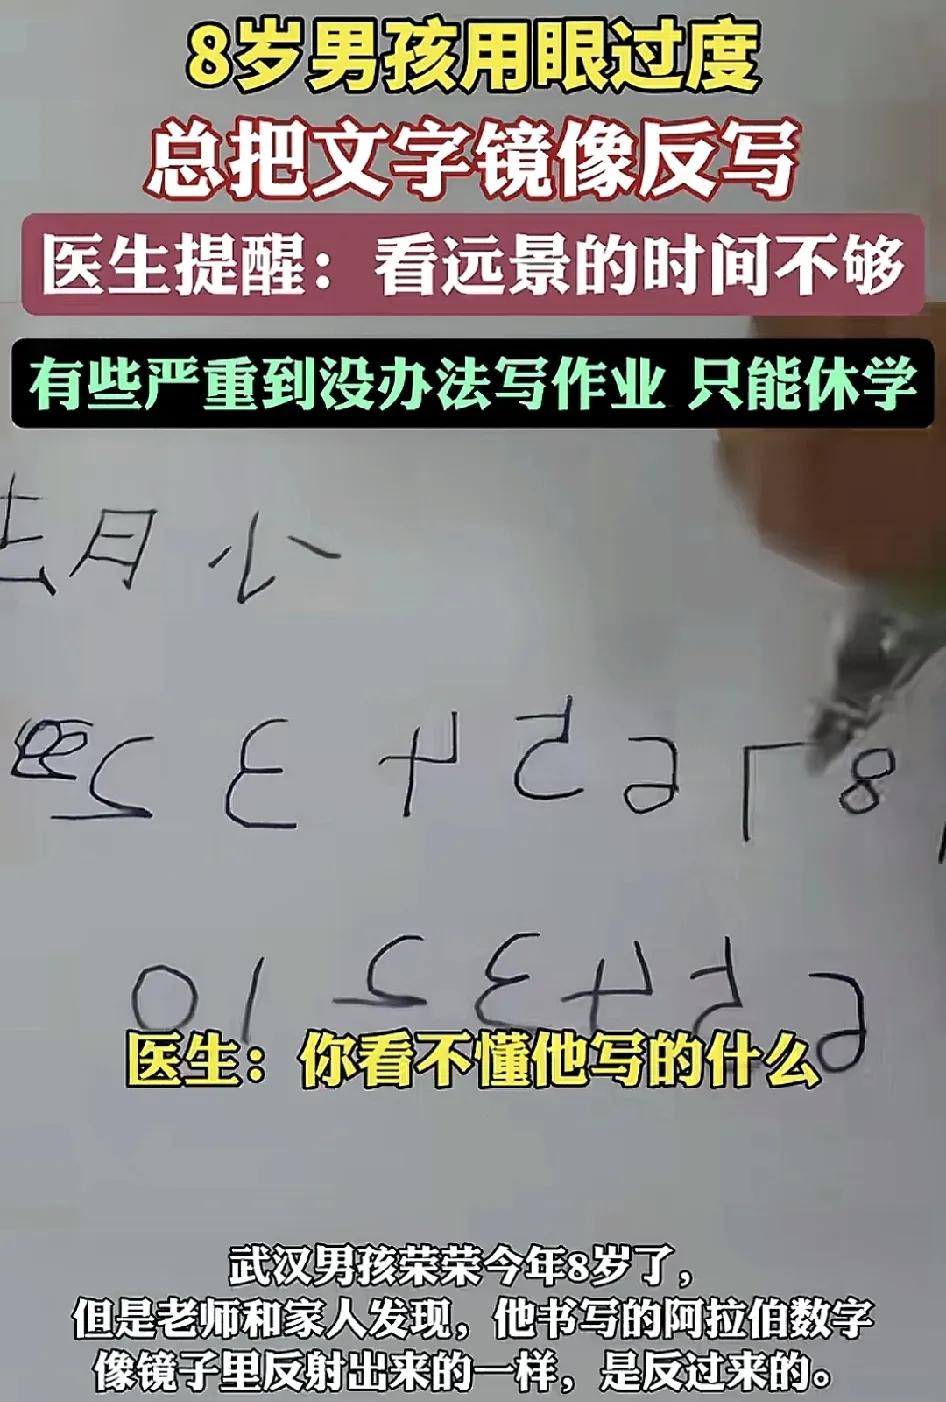 8岁男孩用眼过度
总把文字镜像反写
医生提醒：看远景的时间不够
有些严重到没办法写作业 只能休学
月 小
2 3 4 5 6 7 8
10 2 3 4 5 6
医生：你看不懂他写的什么
武汉男孩荣荣今年8岁了，
但是老师和家人发现，他书写的阿拉伯数字
像镜子里反射出来的一样，是反过来的。